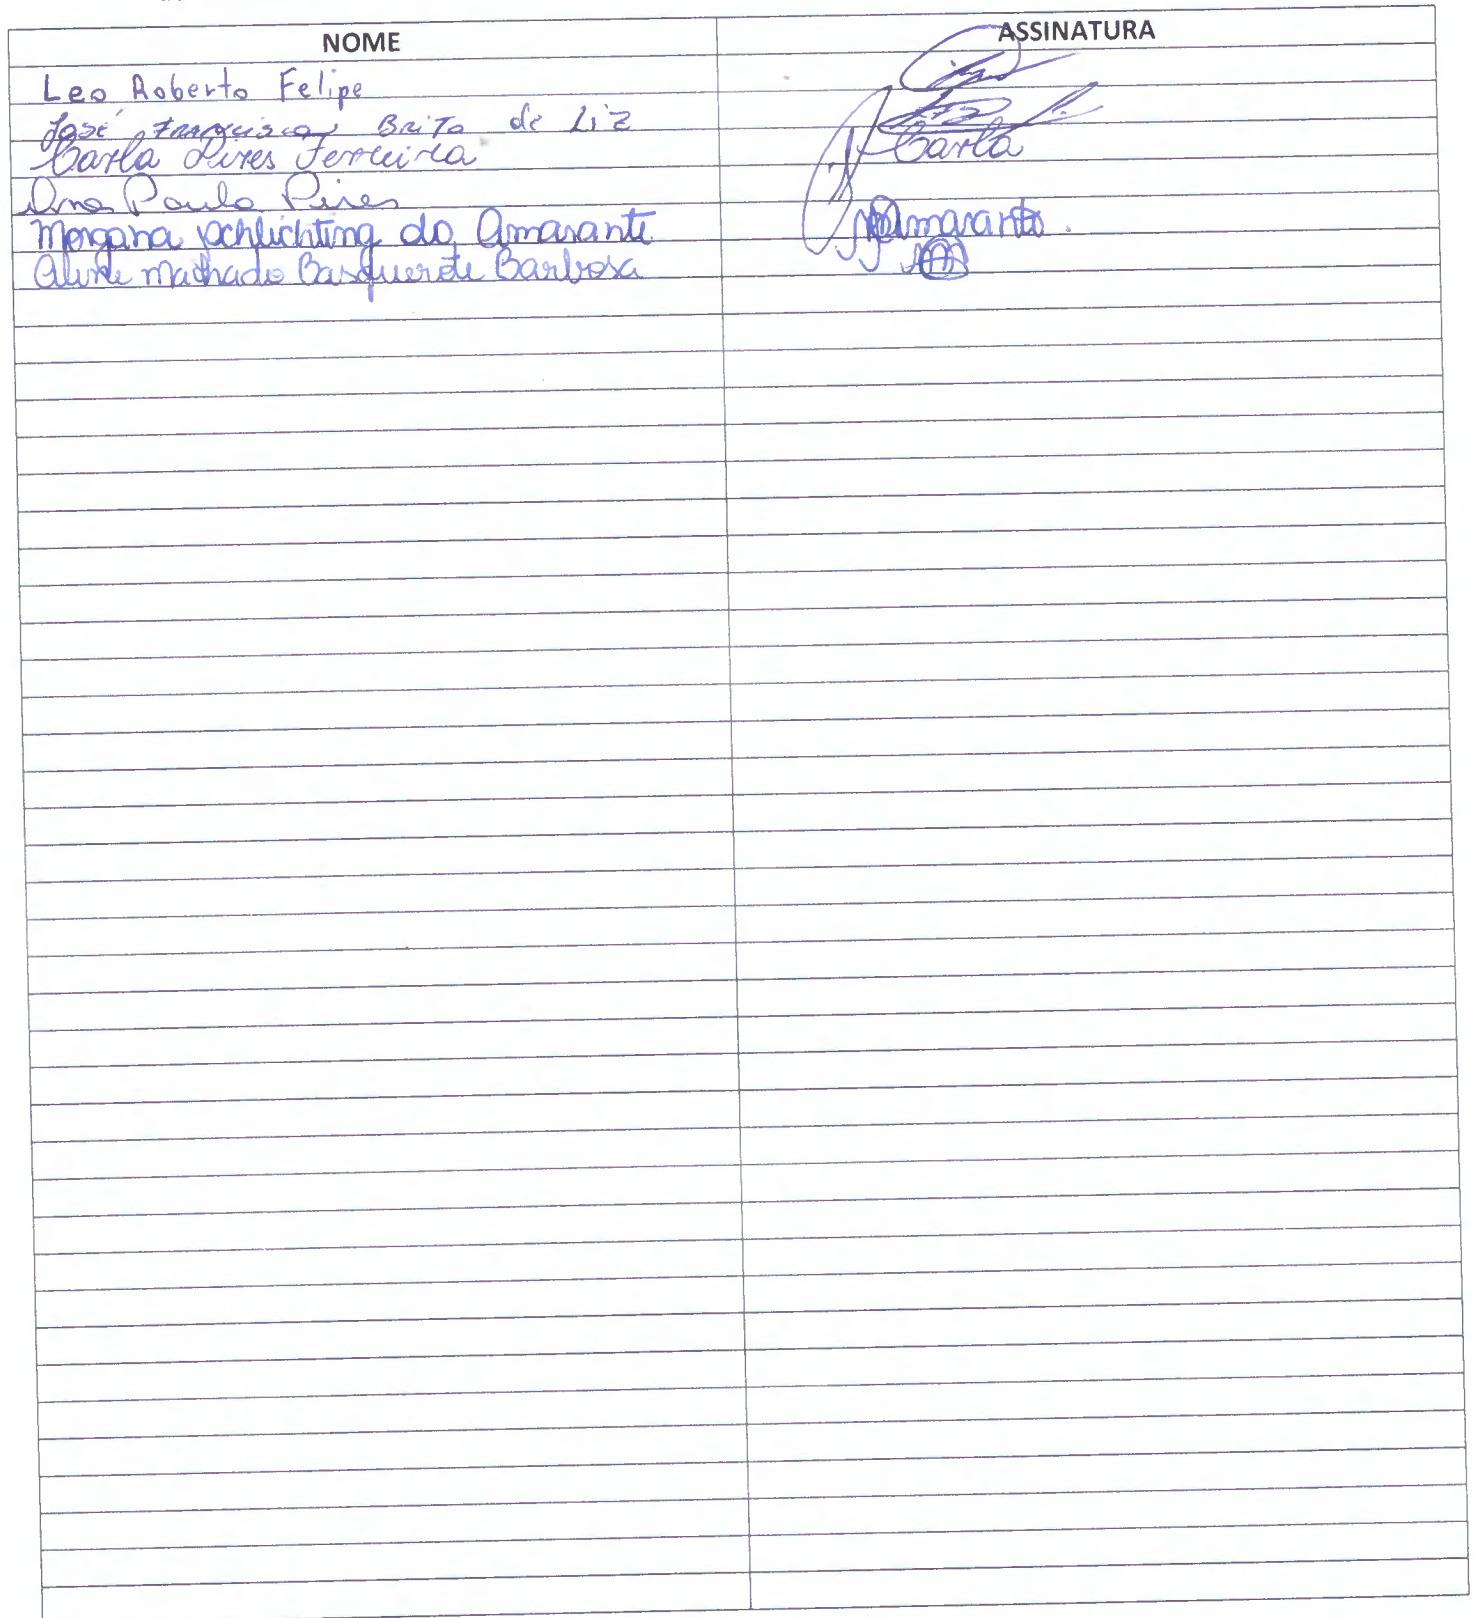 NOME ASSINATURA
Leo Roberto Felipe
José Francisco Brito de Liz
Carla Pires Ferreira Carla
Ana Paula Pires
Morgana Schlichting do Amarante Amarante.
Aline Machado Basquerote Barbosa